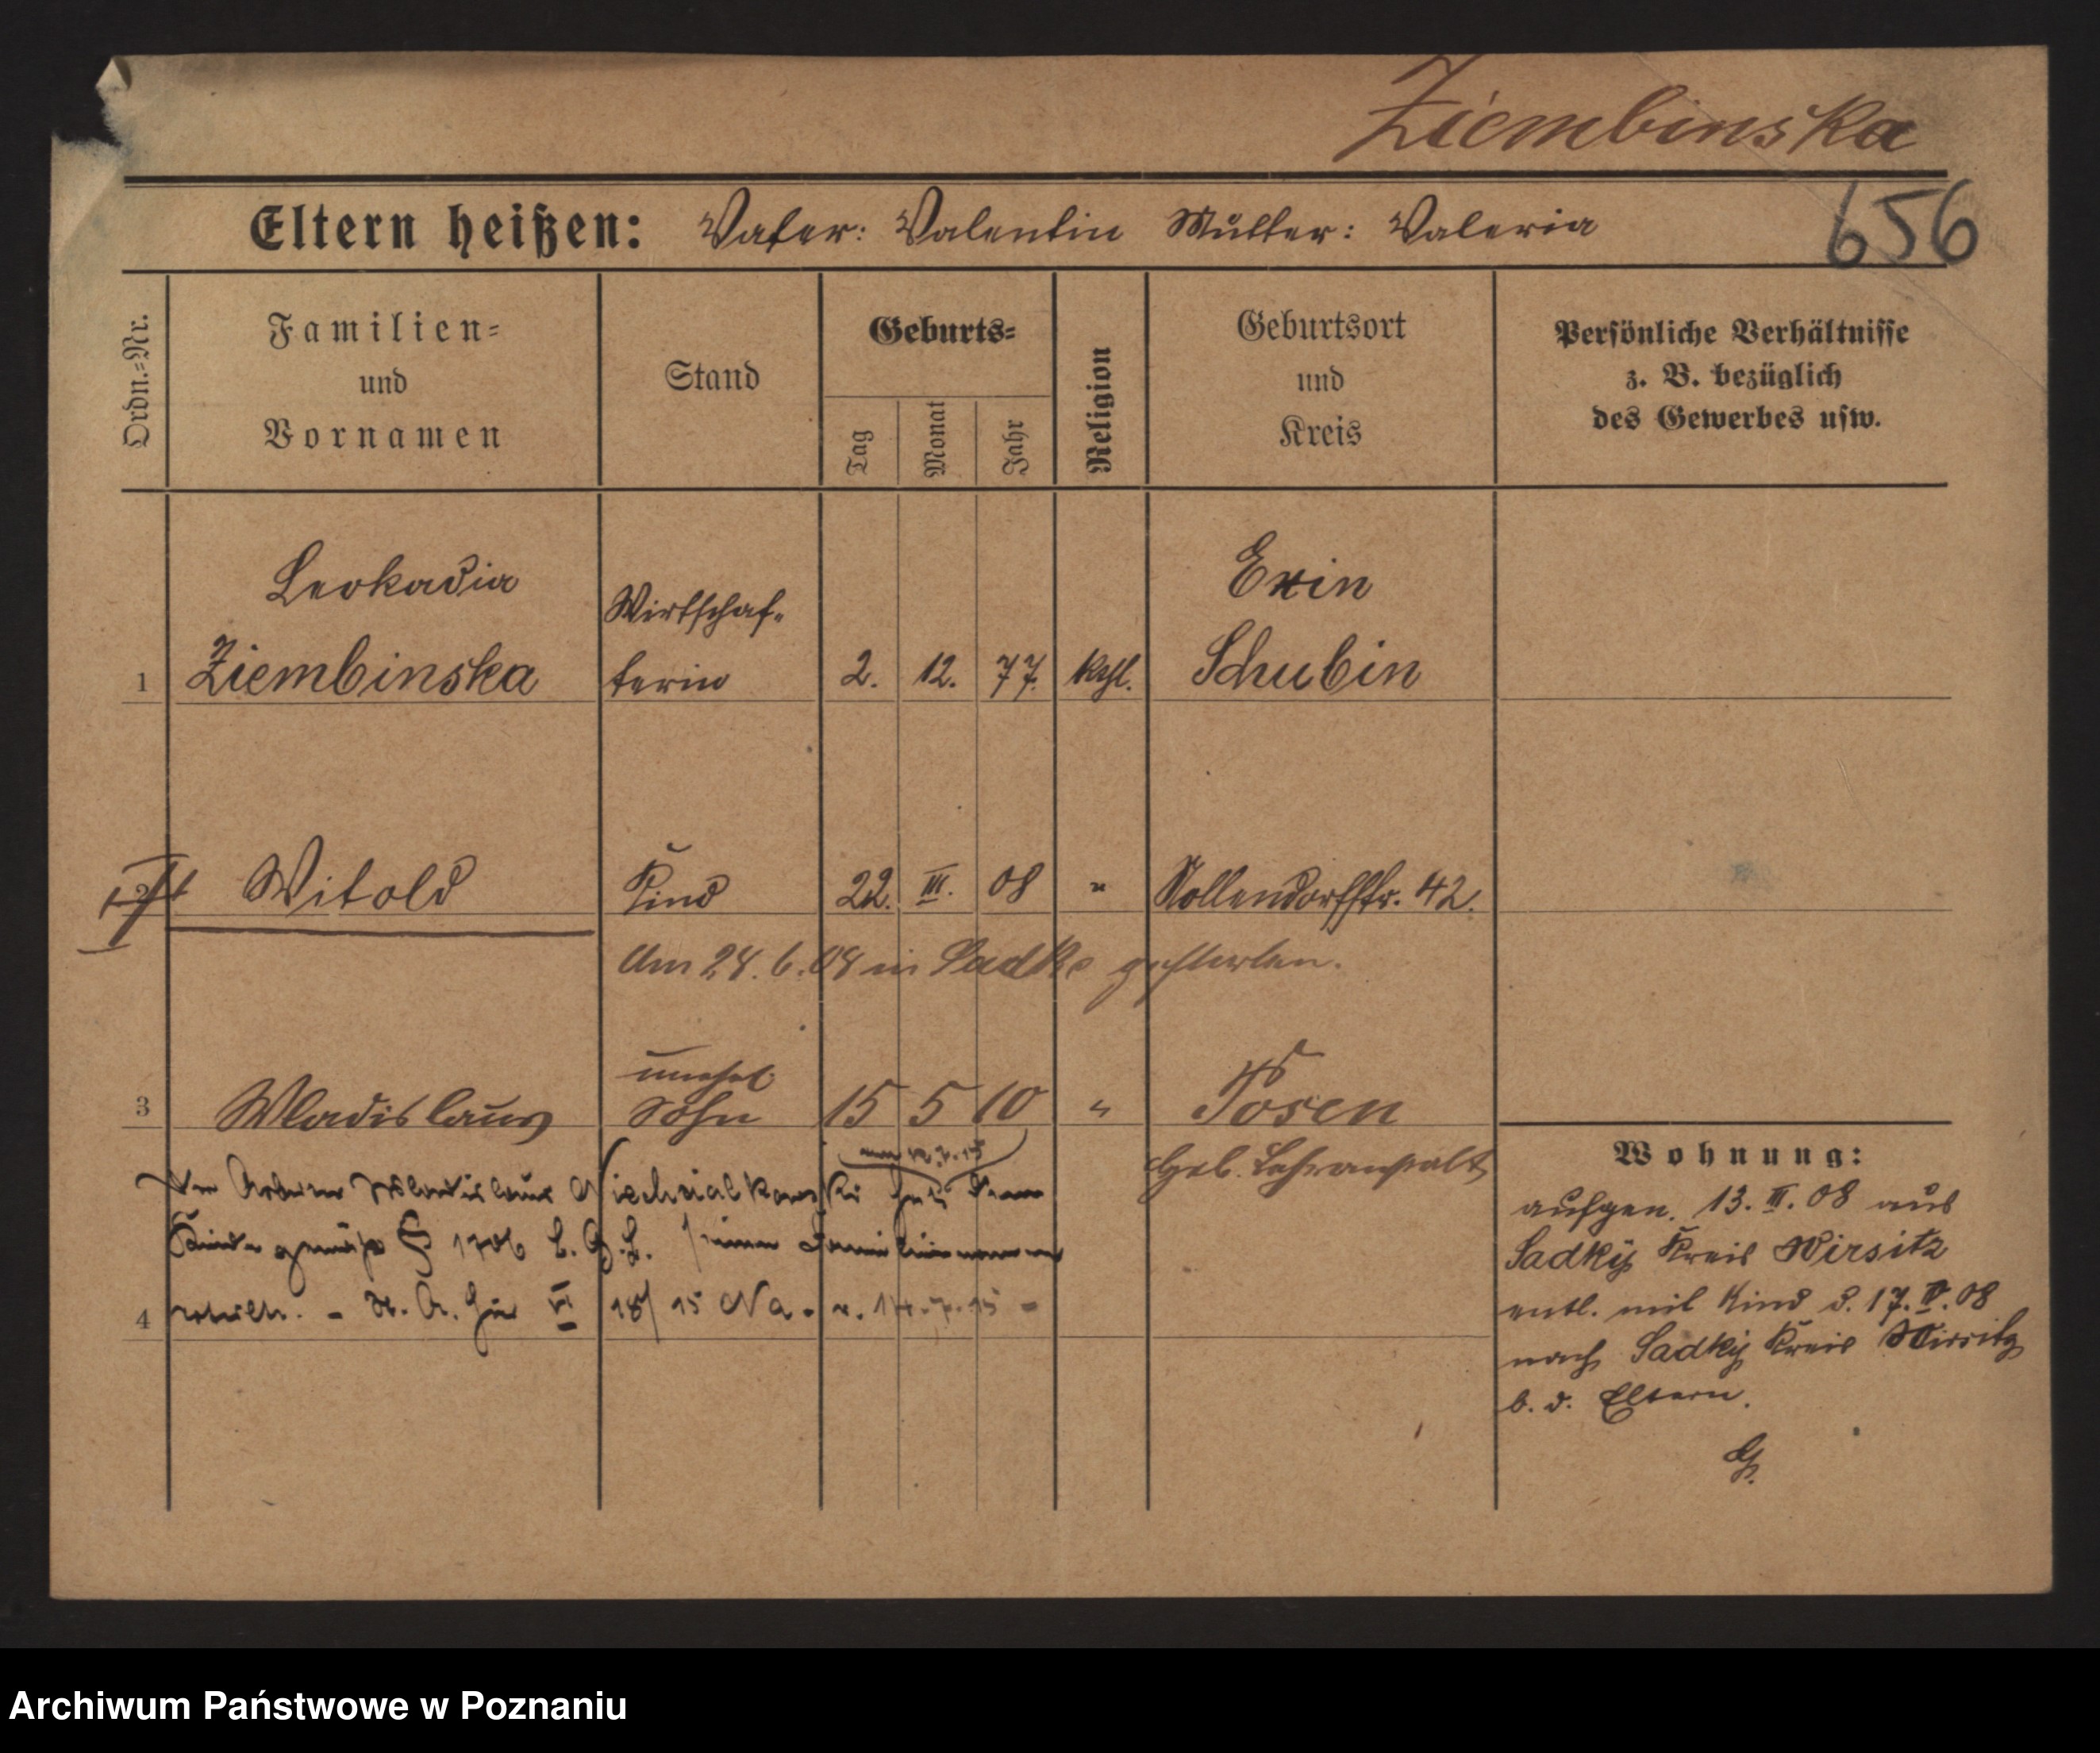 Ziembinska
656
Eltern heißen: Vater: Valentin Mutter: Valeria
Ordn.=Nr.
Familien=
und
Vornamen
Stand
Geburts=
Tag
Monat
Jahr
Religion
Geburtsort
und
Kreis
Persönliche Verhältnisse
z. B. bezüglich
des Gewerbes usw.
1
Leokadia
Ziembinska
Wirtschaf-
terin
2. 12. 77. kath.
Exin
Schubin
2 Witold Kind 22. III. 08 " Nollendorfstr. 42.
Am 24. 6. 08 in Sadke gestorben.
3 Wladislaus
unehel.
Sohn
15 5 10 "
Posen
Heb. Lehranstalt
Der Arbeiter Wladislaus Niechcialkowski hat dem
Kinde gemäß § 1706 B.G.B. seinen Familiennamen
4 erteilt. - St. A. hier VI 18/15 Na. v. 14.7.15 -
Wohnung:
aufgen. 13. III. 08 aus
Sadky Kreis Wirsitz
entl. mit Kind d. 17. IV. 08
nach Sadky Kreis Wirsitz
b. d. Eltern.
Archiwum Państwowe w Poznaniu